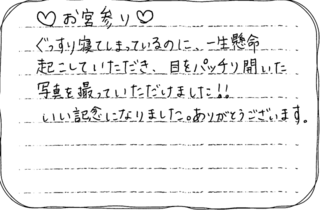 ♡お宮参り♡
ぐっすり寝てしまっているのに、一生懸命
起こしていただき、目をパッチリ開いた
写真を撮っていただけました!!
いい記念になりました。ありがとうございます。